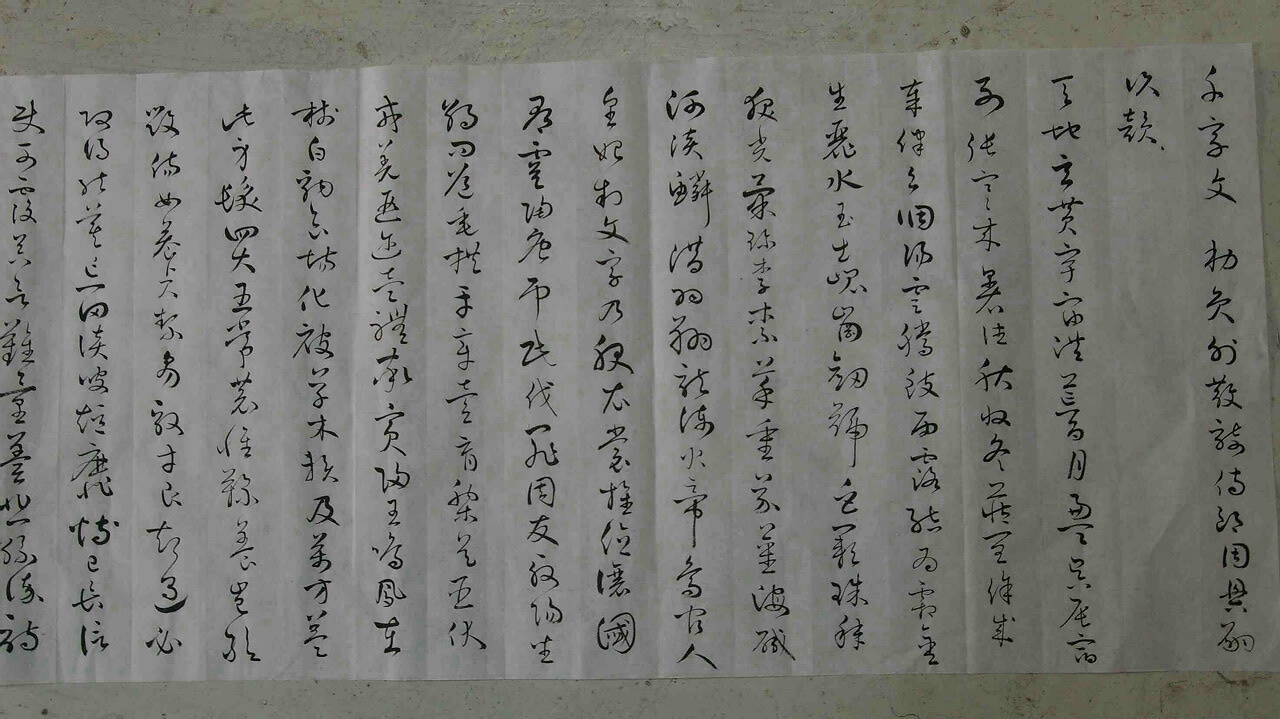 千字文 勅員外散騎侍郎周興嗣
次韻
天地玄黃宇宙洪荒日月盈昃辰宿
列張寒來暑往秋收冬藏閏餘成
歲律呂調陽雲騰致雨露結為霜金
生麗水玉出崐崗劒號巨闕珠稱
夜光菓珍李柰菜重芥薑海醎
河淡鱗潛羽翔龍師火帝鳥官人
皇始制文字乃服衣裳推位讓國
有虞陶唐弔民伐罪周發殷湯坐
朝問道垂拱平章愛育黎首臣伏
戎羌遐邇壹體率賓歸王鳴鳳在
樹白駒食場化被草木賴及萬方蓋
此身髮四大五常恭惟鞠養豈敢
毀傷女慕貞絜男效才良知過必
改得能莫忘罔談彼短靡恃己長信
使可覆器欲難量墨悲絲染詩